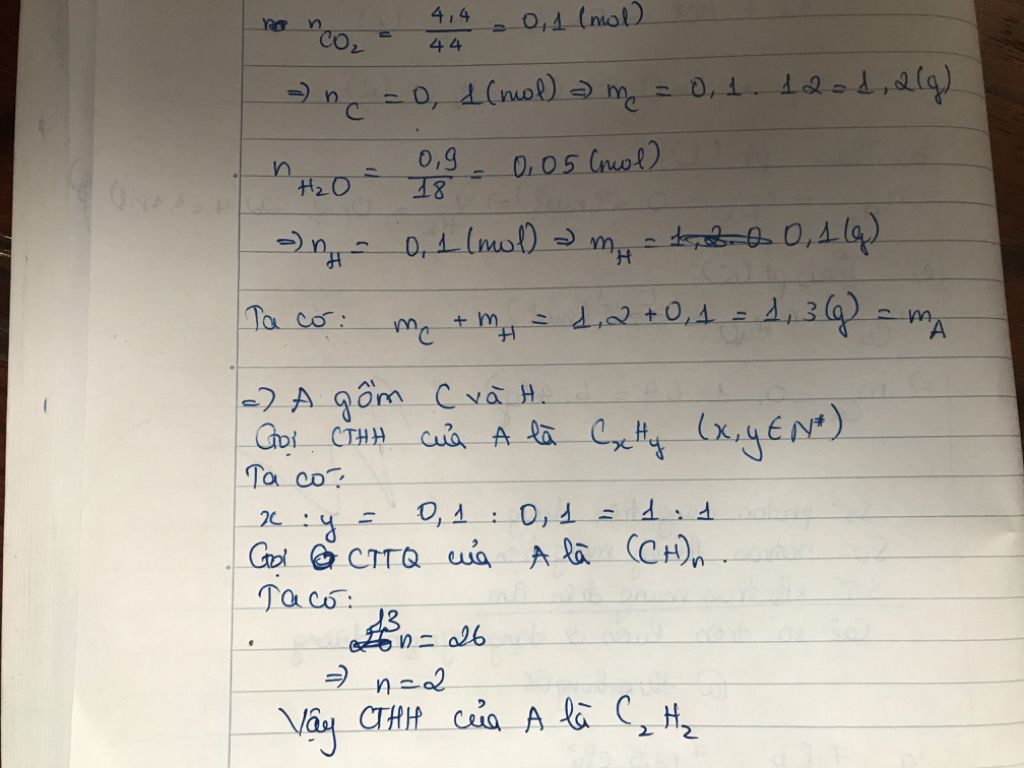 n CO2 = 4,4/44 = 0,1 (mol)
=> nC = 0,1 (mol) => mC = 0,1 . 12 = 1,2(g)
n H2O = 0,9/18 = 0,05 (mol)
=> nH = 0,1 (mol) => mH = 0,1(g)
Ta có: mC + mH = 1,2 + 0,1 = 1,3(g) = mA
=> A gồm C và H.
Gọi CTHH của A là CxHy (x,y ∈ N*)
Ta có:
x : y = 0,1 : 0,1 = 1 : 1
Gọi CTTQ của A là (CH)n.
Ta có:
13n = 26
=> n = 2
Vậy CTHH của A là C2H2